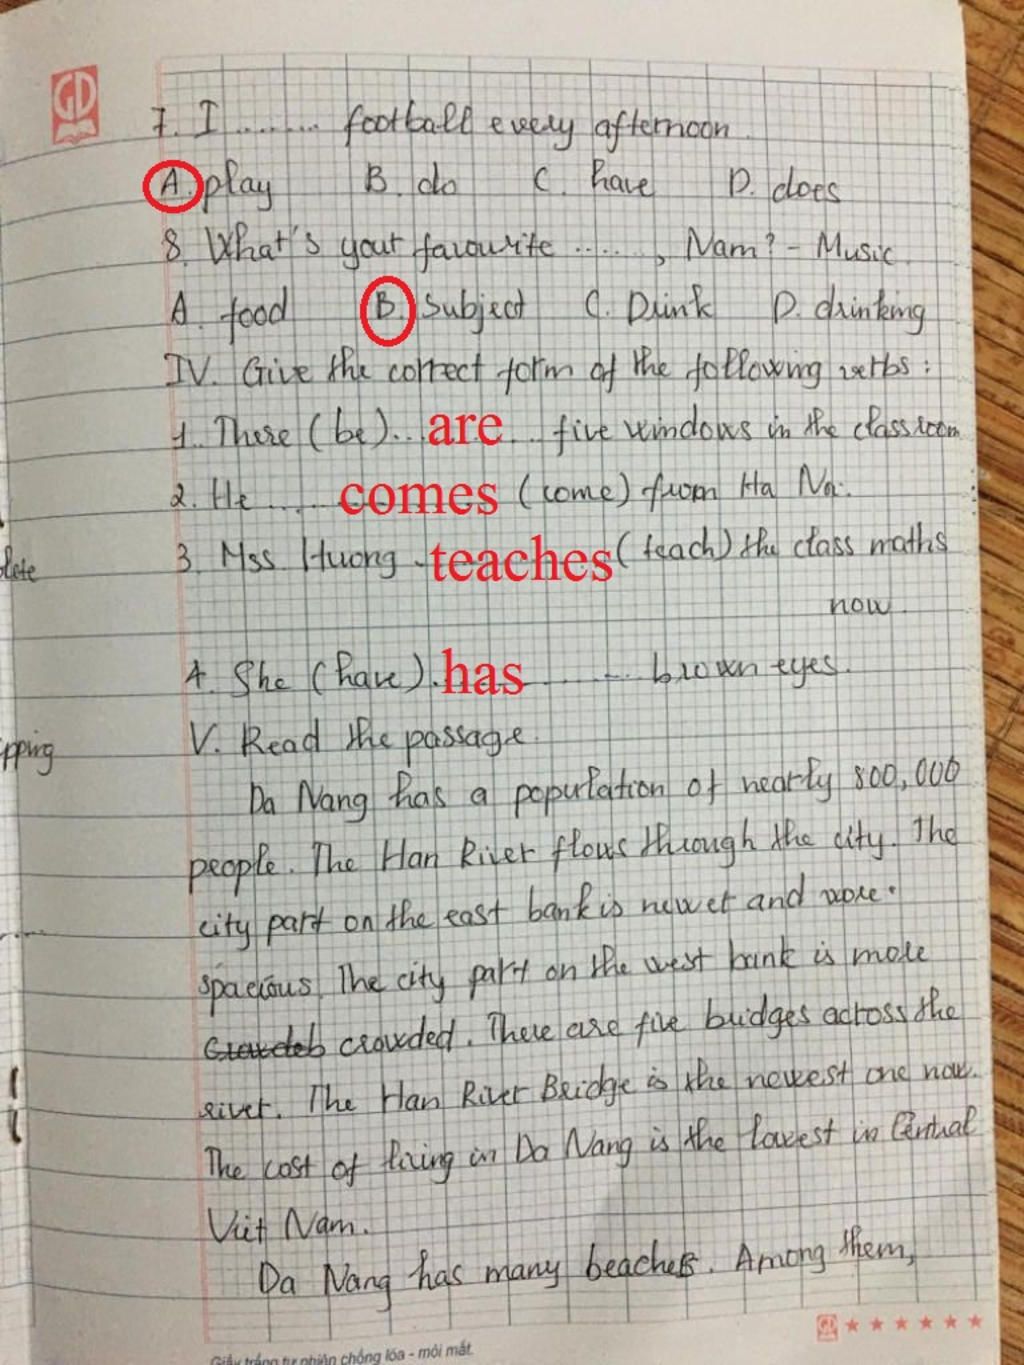 GD
7. I ......... football every afternoon.
A. play B. do C. have D. does
8. What's your favourite ......, Nam? - Music.
A. food B. Subject C. Drink D. drinking
IV. Give the correct form of the following verbs:
1. There (be)... are ... five windows in the classroom
2. He ..... comes (come) from Ha Na.
3. Mss Huong teaches (teach) the class maths
now
4. She (have). has ......... brown eyes.
V. Read the passage.
Da Nang has a population of nearly 800,000
people. The Han River flows through the city. The
city part on the east bank is newer and more
spacious. The city part on the west bank is more
crowded. There are five bridges across the
river. The Han River Bridge is the newest one now.
The cost of living in Da Nang is the lowest in Central
Viet Nam.
Da Nang has many beaches. Among them,
GD ★★★★★★
Giấy trắng tự nhiên chống lóa - mỏi mắt.
plete
pping